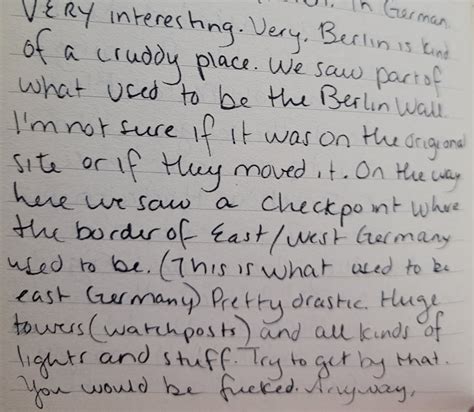 In German
VERY interesting. Very. Berlin is kind
of a cruddy place. We saw part of
what used to be the Berlin Wall
I'm not sure if it was on the origional
site or if they moved it. On the way
here we saw a checkpoint where
the border of East/West Germany
used to be. (This is what used to be
east Germany) Pretty drastic. Huge
towers (watchposts) and all kinds of
lights and stuff. Try to get by that.
You would be fucked. Anyway,